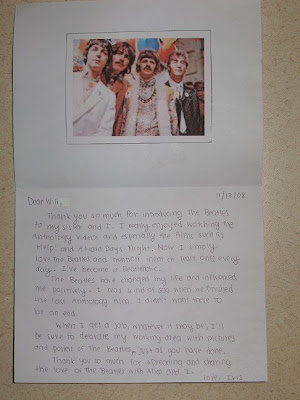 11/12/08
Dear Will,
Thank you so much for introducing The Beatles
to my sister and I. I really enjoyed watching the
anthology videos and especially the films such as
Help! and A Hard Day's Night. Now I simply
love The Beatles and mention them at least once every
day. I've become a Beatlemaniac.
The Beatles have changed my life and influenced
me positively. I was kind of sad when we finished
the last Anthology film. I didn't want it to
be an end.
When I get a job, wherever it may be, I'll
be sure to decorate my working area with pictures
and posters of The Beatles, just as you have done.
Thank you so much for spreading and sharing
the love of The Beatles with and I.
Love,